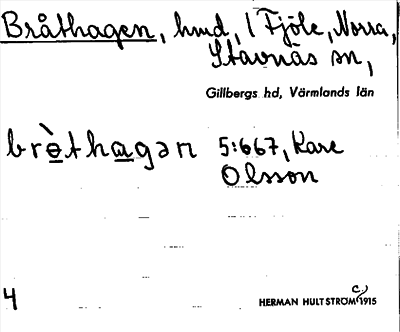 Bråthagen, hmd, 1 Fjöle, Norra,
Stavnäs sn,
Gillbergs hd, Värmlands län
brèthagən 5:667, Kare
Olsson
4
HERMAN HULTSTRÖM C.) 1915